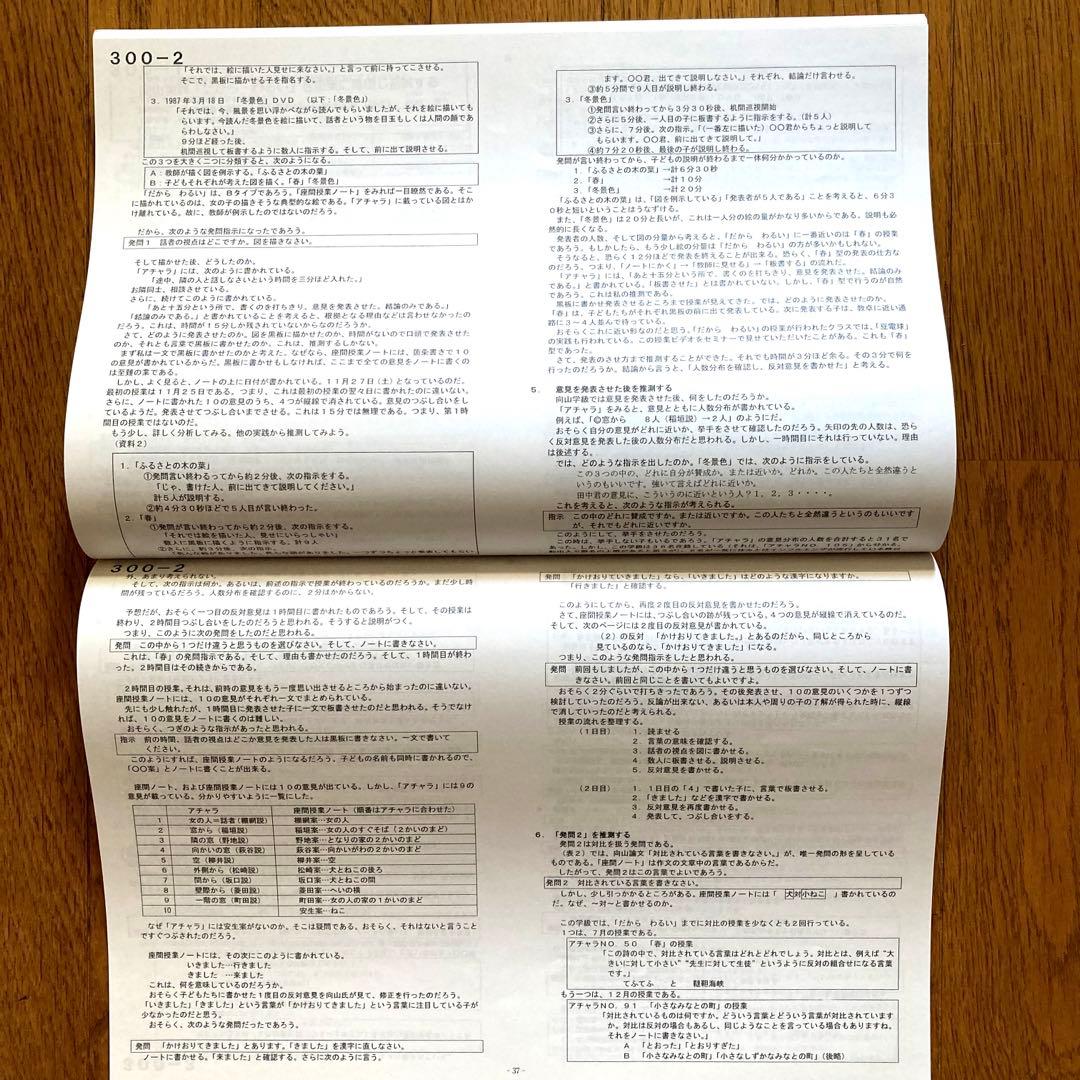 300-2
「それでは、絵に描いた人見せに来なさい。」と言って前に持ってこさせる。
そこで、黒板に描かせる子を指名する。
3.1987年3月18日 「冬景色」DVD (以下:「冬景色」)
「それでは、今、風景を思い浮かべながら読んでもらいましたが、それを絵に描いても
らいます。今読んだ冬景色を絵に描いて、話者という物を目玉もしくは人間の顔であ
らわしなさい。」
9分ほど経った後、
机間巡視して板書するように数人に指示する。そして、前に出て説明させる。
この3つを大きく二つに分類すると、次のようになる。
A:教師が描く図を例示する。「ふるさとの木の葉」
B:子どもそれぞれが考えた図を描く。「春」「冬景色」
「だから わるい」は、Bタイプであろう。「座間授業ノート」をみれば一目瞭然である。そこ
に描かれているのは、女の子の描きそうな典型的な絵である。「アチャラ」に載っている図とはか
け離れている。故に、教師が例示したのではないのだろう。
だから、次のような発問指示になったであろう。
発問1 話者の視点はどこですか。図を描きなさい。
そして描かせた後、どうしたのか。
「アチャラ」には、次のように書かれている。
「途中、隣の人と話しなさいという時間を三分ほど入れた。」
お隣同士、相談させている。
さらに、続けてこのように書かれている。
「あと十五分という所で、書くのを打ちきり、意見を発表させた。結論のみである。」
「結論のみである。」と書かれていることを考えると、根拠となる理由などは言わせなかったの
だろう。これは、時間が「15分しか残されていないからなのだろうか。
さて、どのように発表させたのか。図を黒板に描かせたのか、時間がないので口頭で発表させた
のか、それとも言葉で黒板に書かせたのか。これは、推測するしかない。
まず私は一文で黒板に書かせたのかと考えた。なぜなら、座間授業ノートには、箇条書きで10
の意見が書かれているからだ。黒板に書かせもしなければ、ここまで全ての意見をノートに書くの
は至難の業である。
しかし、よく見ると、ノートの上に日付が書かれている。11月27日(土)となっているのだ。
最初の授業は11月25日である。つまり、これは最初の授業の翌々日に書かれたのに違いない。
さらに、ノートに書かれた10の意見のうち、4つが縦線で消されている。意見のつぶし合いをし
ているようだ。発表させてつぶし合いまでさせる。これは15分では無理である。つまり、第1時
間目の授業ではないのだ。
もう少し、詳しく分析してみる。他の実践から推測してみよう。
(資料2)
1.「ふるさとの木の葉」
①発問言い終わるってから約2分後、次の指示をする。
「じゃ、書けた人、前に出てきて説明してください。」
計5人が説明する。
②約4分30秒ほどで5人目が言い終わった。
2.「春」
①発問が言い終わってから約2分後、次の指示をする。
「それでは絵を描いた人、見せにいらっしゃい」
数人に黒板に描くように指示する。計9人
②さらに、約3分後、次の指示。
ます。○○君、出てきて説明しなさい。」それぞれ、結論だけ言わせる。
③約5分間で9人目が説明し終わる。
3.「冬景色」
①発問言い終わってから3分30秒後、机間巡視開始
②さらに5分後、一人目の子に板書するように指示をする。(計5人)
③さらに、7分後。次の指示。「(一番左に描いた)○○君からちょっと説明して
もらいます。○○君、前に出てきて説明して。」
④約7分20秒後、最後の子が説明し終わる。
発問が言い終わってから、子どもの説明が終わるまで一体何分かかっているのか。
1.「ふるさとの木の葉」→計6分30秒
2.「春」 →計10分
3.「冬景色」 →計20分
「ふるさとの木の葉」は、「図を例示している」「発表者が5人である」ことを考えると、6分3
0秒と短いということはうなずける。
また、「冬景色」は20分と長いが、これは一人分の絵の量がかなり多いからである。説明も必
然的に長くなる。
発表者の人数、そして図の分量から考えると、「だから わるい」に一番近いのは「春」の授業
であろう。もしかしたら、もう少し絵の分量は「だから わるい」の方が多いかもしれない。
そうなると、恐らく12分ほどで発表を終えることが出来る。恐らく、「春」型の発表の仕方な
のだろう。つまり、「ノートにかく」→「教師に見せる」→「板書する」の流れだ。
「アチャラ」には、「あと十五分という所で、書くのを打ちきり、意見を発表させた。結論のみ
である。」と書かれている。「板書させた」とは書かれていない。しかし、「春」型で行うのが自然
であろう。これは私の推測である。
黒板に書かせ発表させるところまで授業が見えてきた。では、どのように発表させたのか。
「春」は、子どもたちがそれぞれ黒板の前に出て発表している。次に発表する子は、教卓に近い通
路に3~4人並んで待っている。
おそらくこれに近い形なのだと思う。「だから わるい」の授業が行われたクラスでは、「豆電球」
の実践も行われている。この授業ビデオをセミナーで見せていただいたことがある。これも「春」
型であった。
さて、発表のさせ方まで推測することができた。それでも時間が3分ほど余る。その3分で何を
行ったのだろうか。結論から言うと、「人数分布を確認し、反対意見を書かせた」と考える。
5. 意見を発表させた後を推測する
向山学級では意見を発表させた後、何をしたのだろうか。
「アチャラ」をみると、意見とともに人数分布が書かれている。
例えば、「◎窓から 8人(稲垣説)→2人」のようにだ。
おそらく自分の意見がどれに近いか、挙手をさせて確認したのだろう。矢印の先の人数は、恐ら
く反対意見を発表した後の人数分布だと思われる。しかし、一時間目にそれは行っていない。理由
は後述する。
では、どのような指示を出したのか。「冬景色」では、次のように指示をしている。
この3つの中の、どれに自分が賛成か。または近いか。どれか。この人たちと全然違うと
いうのもいいです。強いて言えばどれに近いか。
田中君の意見に、こういうのに近いという人?1、2、3・・・・。
これを考えると、次のような指示が考えられる。
指示 この中のどれに賛成ですか。または近いですか。この人たちと全然違うというのもいいです
が、それでもどれに近いですか。
このようにして、挙手をさせたのだろう。
この時は、挙手しない子もいるであろう。「アチャラ」の意見分布の人数を合計すると31名で
300-2
外、あまり考えられない。
そして、次の指示は何か。あるいは、前述の指示で授業が終わっているのだろうか。まだ少し時
間が残っているだろう。人数分布を確認するのに、2分はかからない。
予想だが、おそらく一つ目の反対意見は1時間目に書かれたものであろう。そして、その授業は
終わり、2時間目つぶし合いをしたのだろうと思われる。そうすると説明がつく。
つまり、このように次の発問をしたのだと思われる。
発問 この中から1つだけ違うと思うものを選びなさい。そして、ノートに書きなさい。
これは、「春」の発問指示である。そして、理由も書かせたのだろう。そして、1時間目が終わ
った。2時間目はその続きからである。
2時間目の授業。それは、前時の意見をもう一度思い出させるところから始まったのに違いない。
座間授業ノートには、10の意見がそれぞれ一文でまとめられている。
先にも少し触れたが、1時間目に発表させた子に一文で板書させたのだと思われる。そうでなけ
れば、10の意見をノートに書くのは難しい。
おそらく、つぎのような指示があったと思われる。
指示 前の時間、話者の視点はどこか意見を発表した人は黒板に書きなさい。一文で書いて
ください。
このようにすれば、座間授業ノートのようになるだろう。子どもの名前も同時に書かれるので、
「○○案」とノートに書くことが出来る。
座間ノート、および座間授業ノートには10の意見が出ている。しかし、「アチャラ」には9の
意見が載っている。分かりやすいように一覧にした。
アチャラ 座間授業ノート(順番はアチャラに合わせた)
1 女の人=話者(棚網説) 棚網案…女の人
2 窓から(稲垣説) 稲垣案…女の人のすぐそば(2かいのまど)
3 隣の窓(野地説) 野地案…となりの家の2かいのまど
4 向かいの窓(萩谷説) 萩谷案…向かいがわの2かいのまど
5 空(柳井説) 柳井案…空
6 外側から(松崎説) 松崎案…犬とねこの後ろ
7 間から(坂口説) 坂口案…犬とねこの間
8 壁際から(菱田説) 菱田案…へいの横
9 一階の窓(町田説) 町田案…女の人の家の1かいのまど
10 安生案…ねこ
なぜ「アチャラ」には安生案がないのか。そこは疑問である。おそらく、それはないと言うこと
ですぐつぶされたのだろう。
座間授業ノートには、その次にこのように書かれている。
いきました…行きました
きました …来ました
これは、何を意味しているのだろうか。
おそらく子どもたちに書かせた1度目の反対意見を向山氏が見て、修正を行ったのだろう。
「いきました」「きました」という言葉が「かけおりてきました」という言葉に注目している子が
少なかったのだと思う。
おそらく、次のような発問だったであろう。
発問 「かけおりてきました」とあります。「きました」を漢字に直しなさい。
ノートに書かせる。「来ました」と確認する。さらに次のように言う。
発問 「かけおりていきました」なら、「いきました」はどのような漢字になりますか。
「行きました」と確認する。
このようにしてから、再度2度目の反対意見を書かせたのだろう。
さて、座間授業ノートには、つぶし合いの跡が残っている。4つの意見が縦線で消えているのだ。
そして、次のページには2度目の反対意見が書かれている。
(2)の反対 「かけおりてきました。」とあるのだから、同じところから
見ているのなら、「かけおりてきました」になる。
つまり、このような発問指示をしたと思われる。
発問 前回もしましたが、この中から1つだけ違うと思うものを選びなさい。そして、ノートに書
きなさい。前回と同じことを書いてもよいですよ。
おそらく2分ぐらいで打ちきったであろう。その後発表させ、10の意見のいくつかを1つずつ
検討していったのだろう。反論が出来ない、あるいは本人や周りの子の了解が得られた時に、縦線
で消していったのだと考えられる。
授業の流れを整理する。
(1日目) 1.読ませる
2.言葉の意味を確認する。
3.話者の視点を図に書かせる。
4.数人に板書させる。説明させる。
5.反対意見を書かせる。
(2日目) 1.1日目の「4」で書いた子に、言葉で板書させる。
2.「きました」などを漢字で書かせる。
3.反対意見を再度書かせる。
4.発表して、つぶし合いをする。
6.「発問2」を推測する
発問2は対比を扱う発問である。
(表2)では、向山論文「対比されている言葉を書きなさい。」が、唯一発問の形を呈している
ものである。「座間ノート」は作文の文章中の言葉であるからだ。
したがって、発問2はこの言葉でよいだろう。
発問2 対比されている言葉を書きなさい。
しかし、少し引っかかるところがある。座間授業ノートには「 犬対小ねこ 」書かれているの
だ。なぜ、~対~と書かせるのか。
この学級では、「だから わるい」までに対比の授業を少なくとも2回行っている。
1つは、7月の授業である。
アチャラNO.50 「春」の授業
「この詩の中で、対比されている言葉はどれとどれでしょう。対比とは、例えば"大
きいに対して小さい""先生に対して生徒"というように反対の組合せになる言葉
です。」
てふてふ と 韃靼海峡
もう一つは、12月の授業である。
アチャラNO.91 「小さなみなとの町」の授業
「対比されているものは何ですか。どういう言葉とどういう言葉が対比されています
か。対比は反対の場合もあるし、同じようなことを言っている場合もありますね。
それをノートに書きなさい。」
A 「とおった」「とおりすぎた」
B 「小さなみなとの町」「小さなしずかなみなとの町」(後略)
-37-